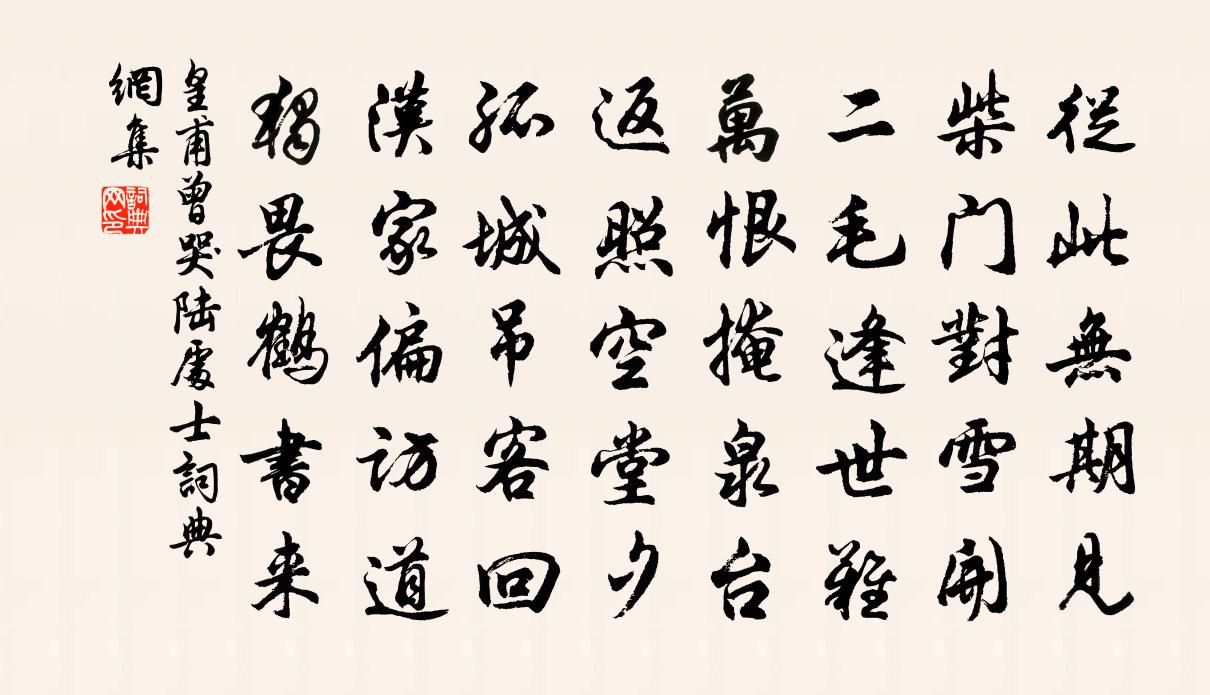 從此無期見
柴门對雪開
二毛逢世難
萬恨掩泉台
返照空堂夕
孤城吊客回
漢家偏访道
獨畏鶴書来
皇甫曾哭陆處士詞典
網集
詞典
网印